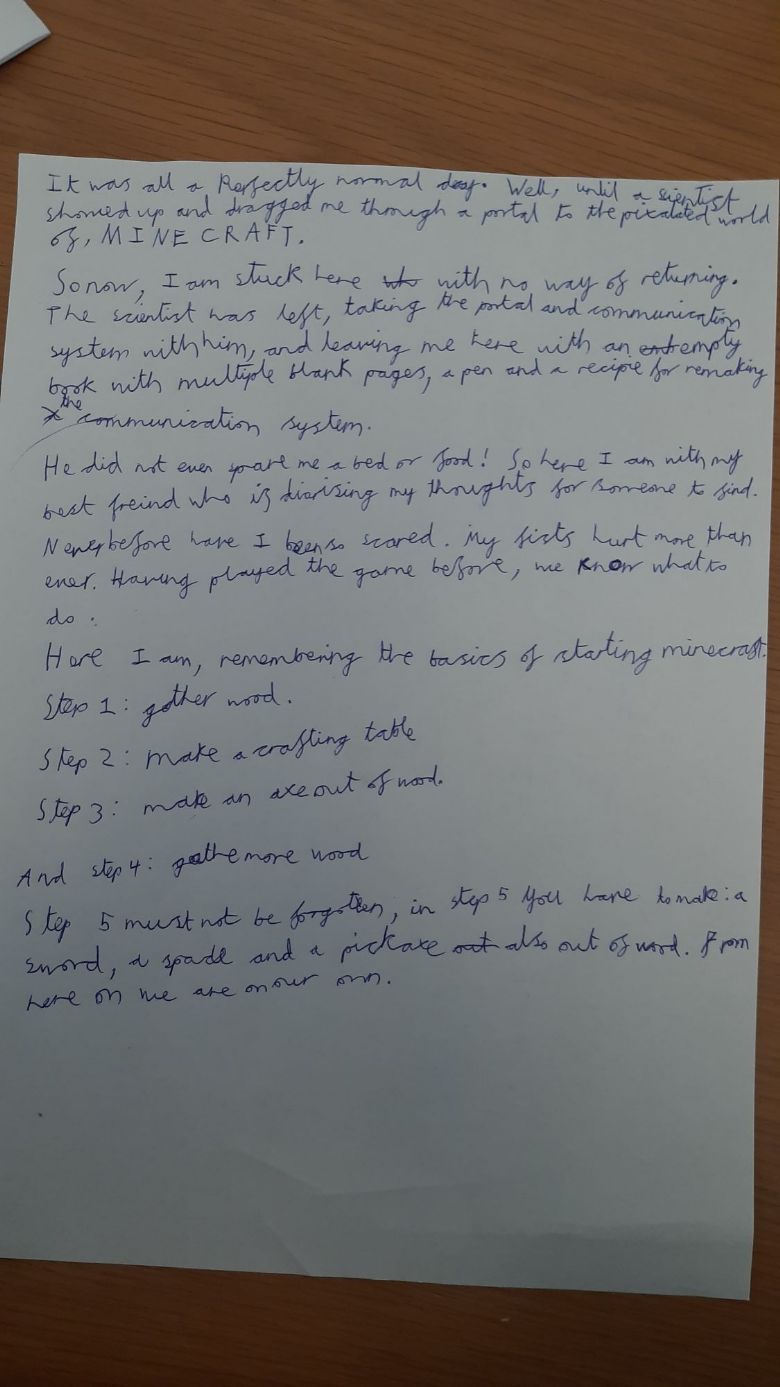 It was all a Perfectly normal day. Well, until a sientist
showed up and dragged me through a portal to the pixalated world
of, MINECRAFT.
So now, I am stuck here with no way of returning.
The scientist has left, taking the portal and communication
system with him, and leaving me here with an empty
book with multiple blank pages, a pen and a recipie for remaking
the communication system.
He did not even spare me a bed or food! So here I am with my
best freind who is diarising my thoughts for someone to find.
Never before have I been so scared. My fists hurt more than
ever. Having played the game before, we know what to
do.
Here I am, remembering the basics of starting minecraft.
Step 1: gather wood.
Step 2: make a crafting table
Step 3: make an axe out of wood.
And step 4: gathe more wood
Step 5 must not be forgotten, in step 5 you have to make: a
sword, a spade and a pickaxe also out of wood. From
here on we are on our own.